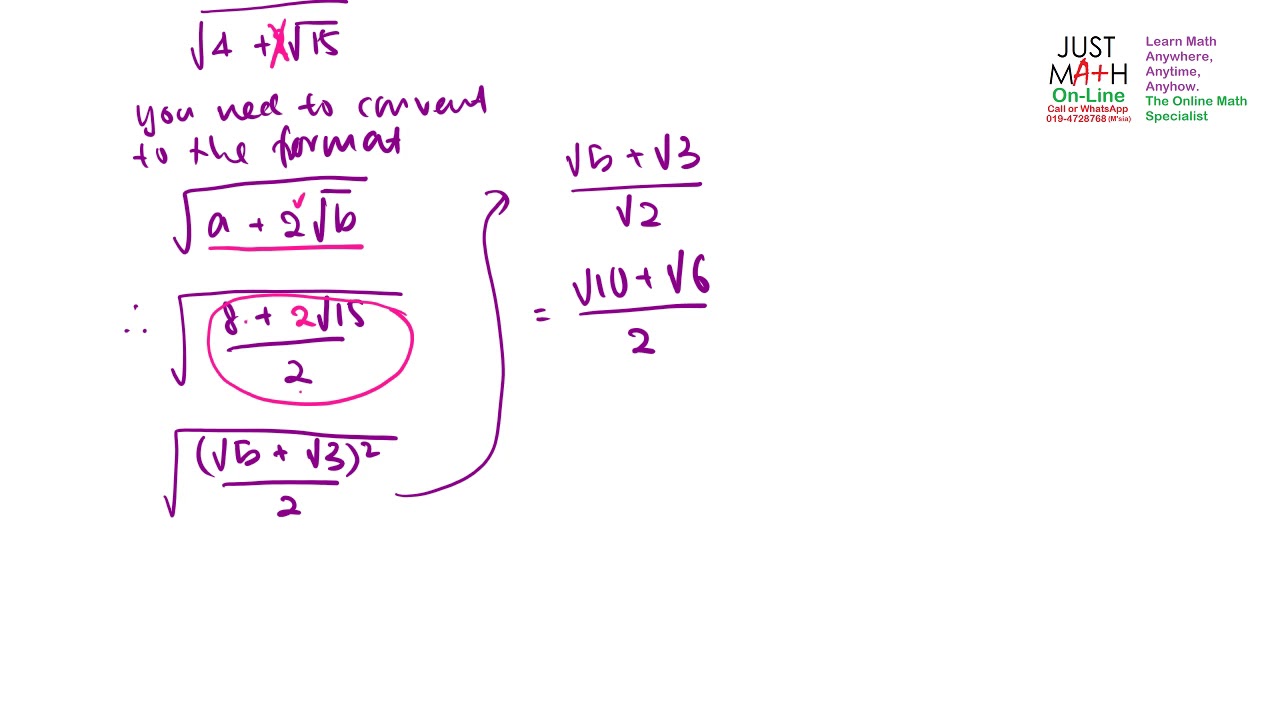 √(4 + √15)
you need to convert
to the format
√(a + 2√b)
∴ √((8 + 2√15)/2)
√((√5 + √3)²/2)
(√5 + √3)/√2
= (√10 + √6)/2
JUST
MA+H
On-Line
Call or WhatsApp
019-4728768 (M'sia)
Learn Math
Anywhere,
Anytime,
Anyhow.
The Online Math
Specialist